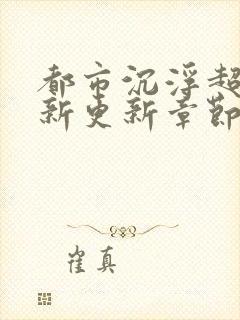 都市沉浮超
新更新章節
崔真